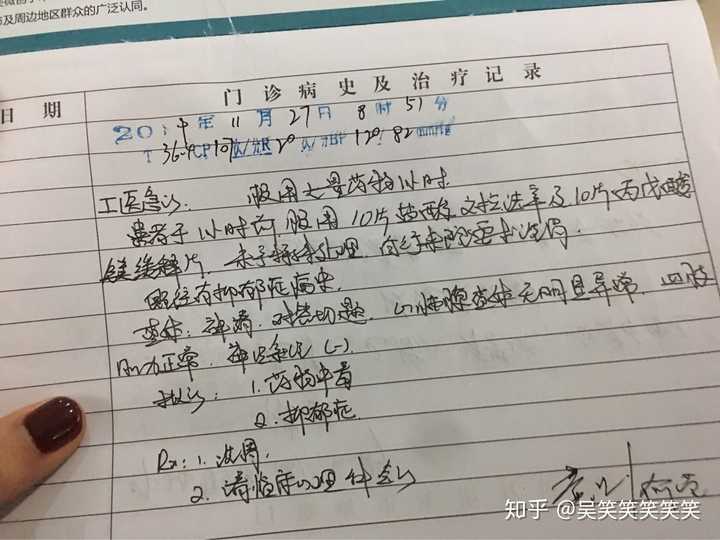 及周边地区群众的广泛认同。
日 期
门 诊 病 史 及 治 疗 记 录
20 年 11 月 27 日 8 时 51 分
T 36.9℃ P 107 次/分 R 20 次/分 BP 120/82 mmHg
服用大量药物 小时
患者于 小时前服用10片盐酸文拉法辛及10片丙戊酸
缓释片,未予特殊处理,自行来院要求洗胃。
既往有抑郁症病史
查体:神清,对答切题,心肺腹查体无明显异常,四肢
肌力正常,神经系统(-).
拟诊: 1. 药物中毒
2. 抑郁症
Rx: 1. 洗胃.
2. 请临床心理科会诊
知乎 @吴笑笑笑笑笑